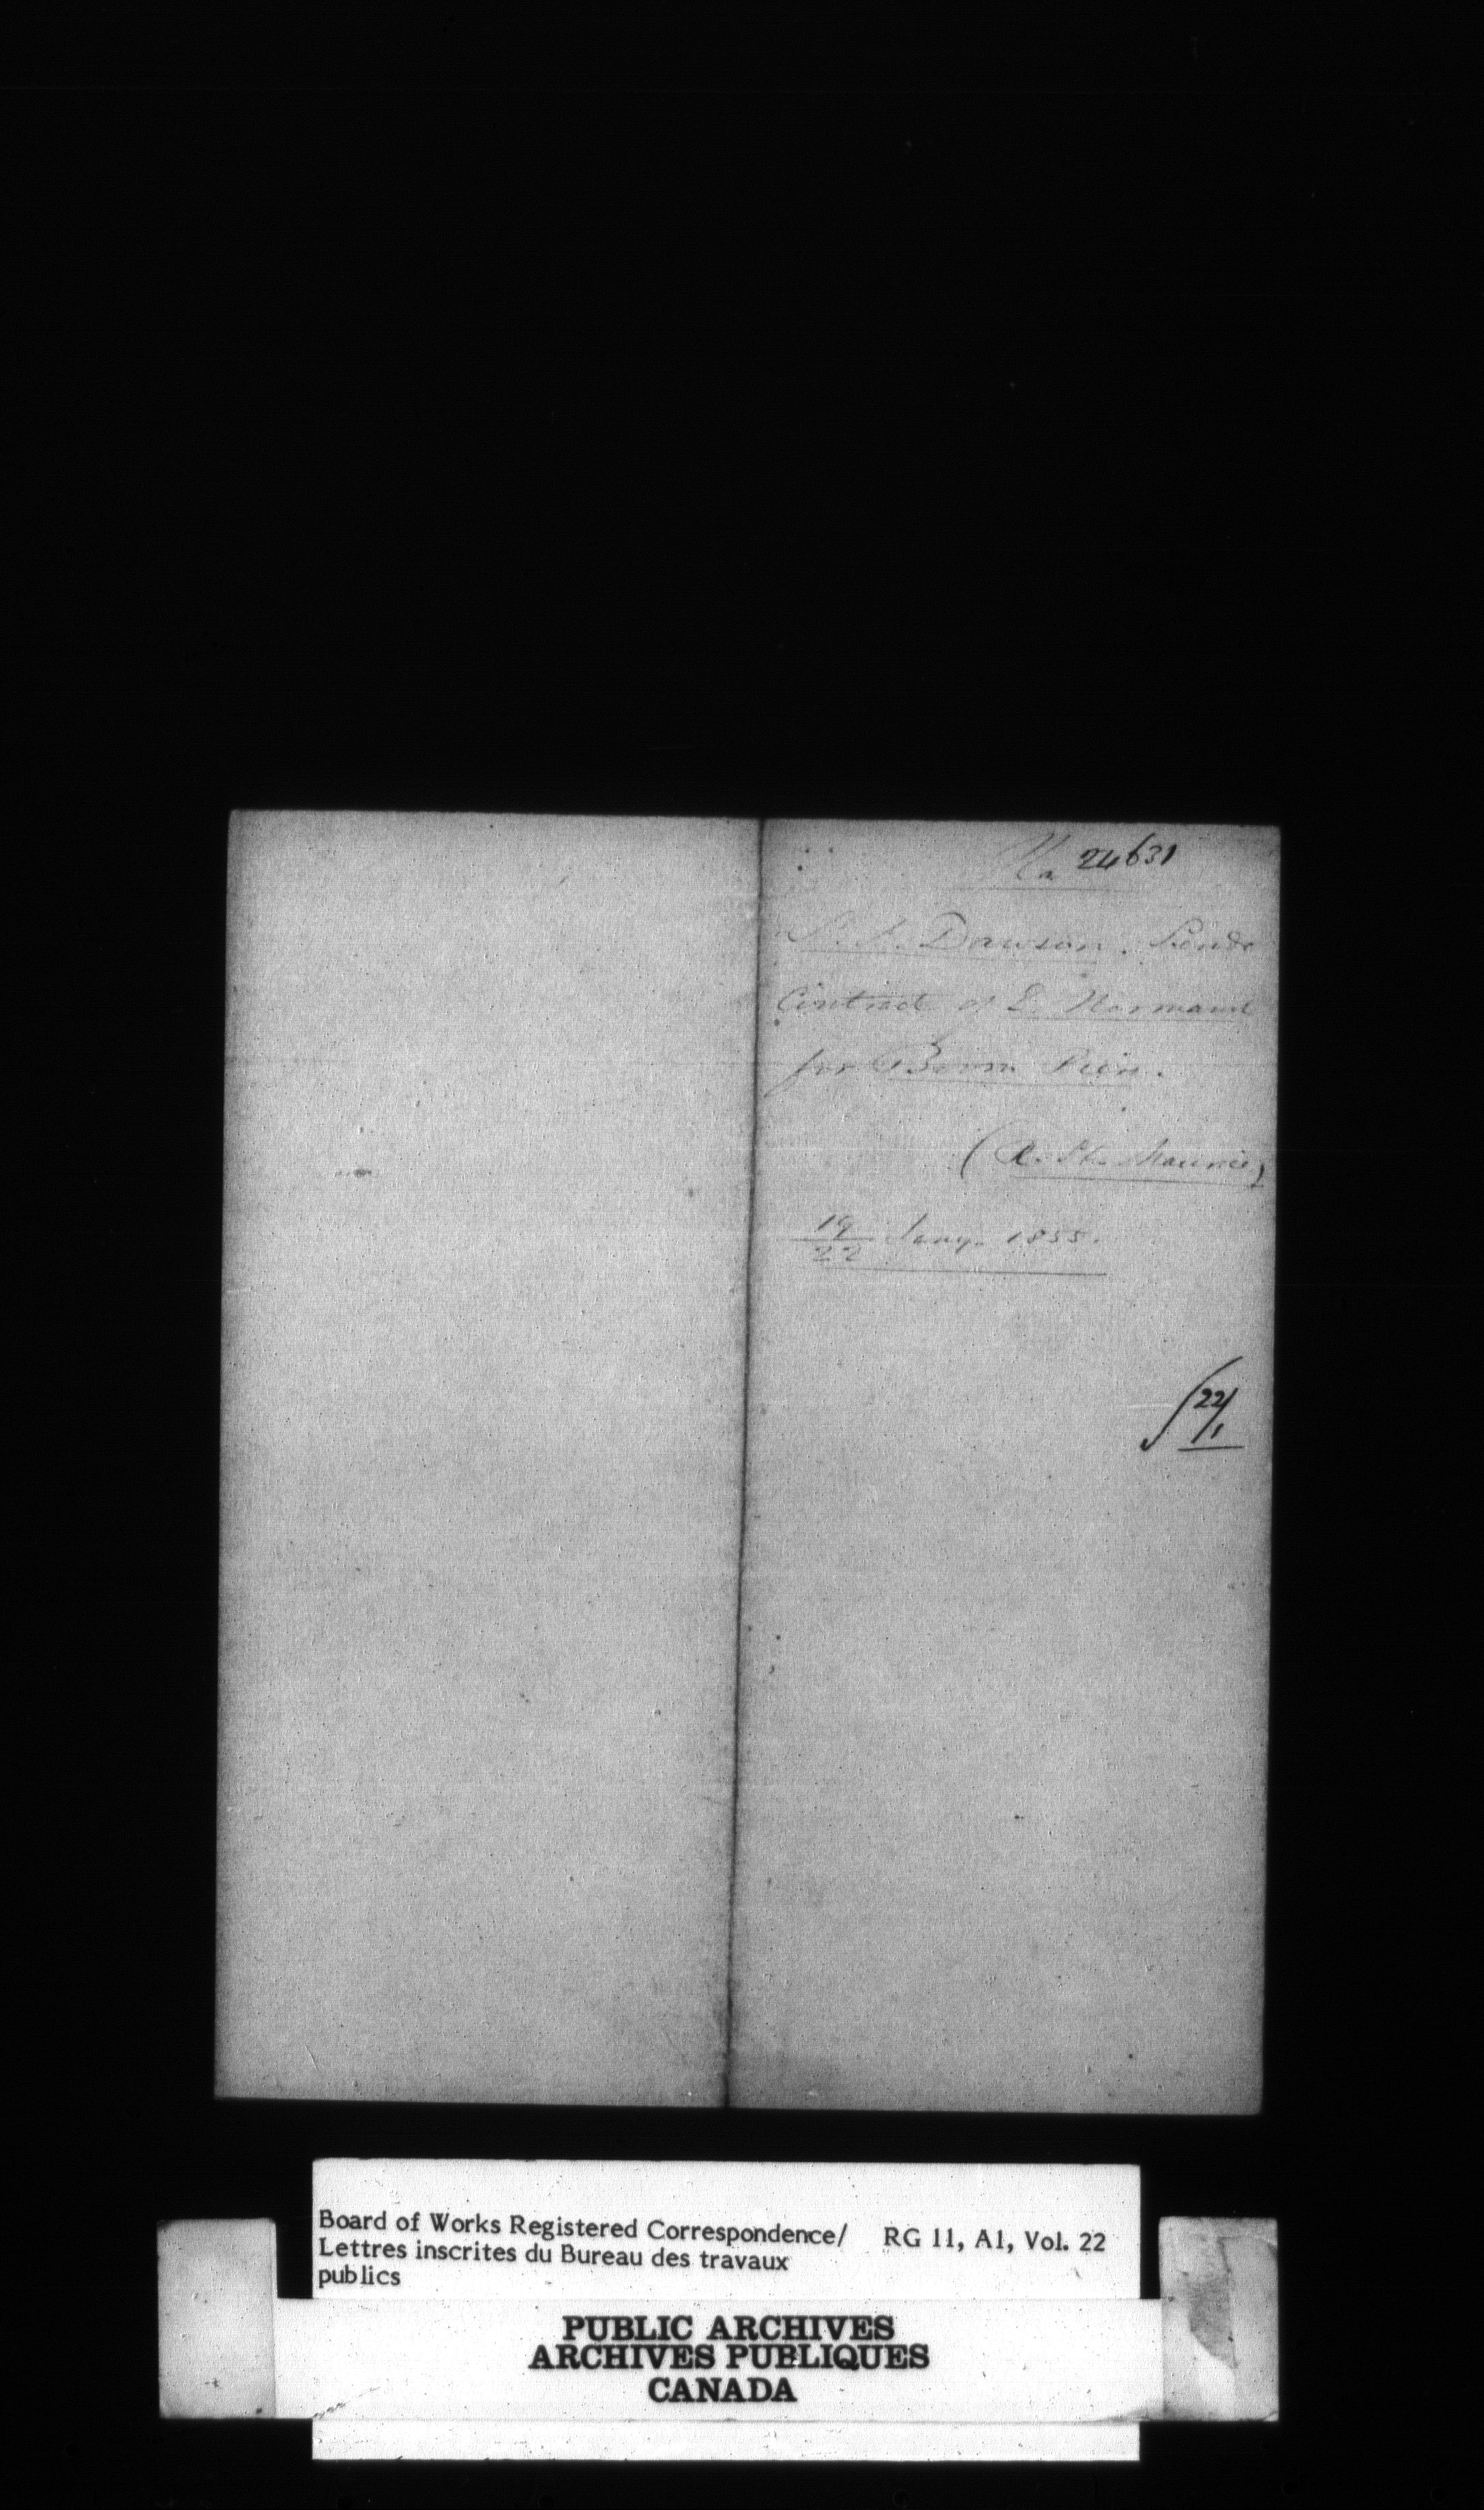 No. 24631
S. J. Dawson. Sends
Contract of E. Normand
for Boom Piers.
(R. St. Maurice)
19/22 Jany. 1855.
22/1
Board of Works Registered Correspondence/ RG 11, A1, Vol. 22
Lettres inscrites du Bureau des travaux
publics
PUBLIC ARCHIVES
ARCHIVES PUBLIQUES
CANADA